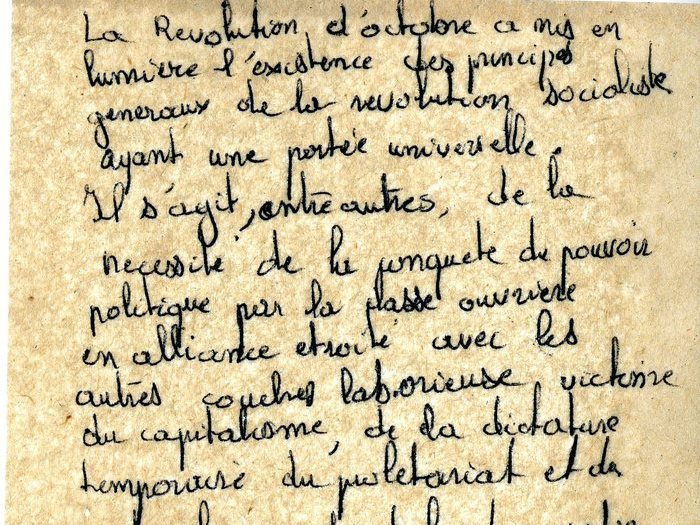 La Revolution, d'octobre a mis en
lumière l'existence des principes
generaux de la revolution socialiste
ayant une portée universelle.
Il s'agit, entre autres, de la
necessité de la conquete du pouvoir
politique par la classe ouvrière
en alliance etroite avec les
autres couches laborieuse victoire
du capitalisme, de la dictature
temporaire du proletariat et du